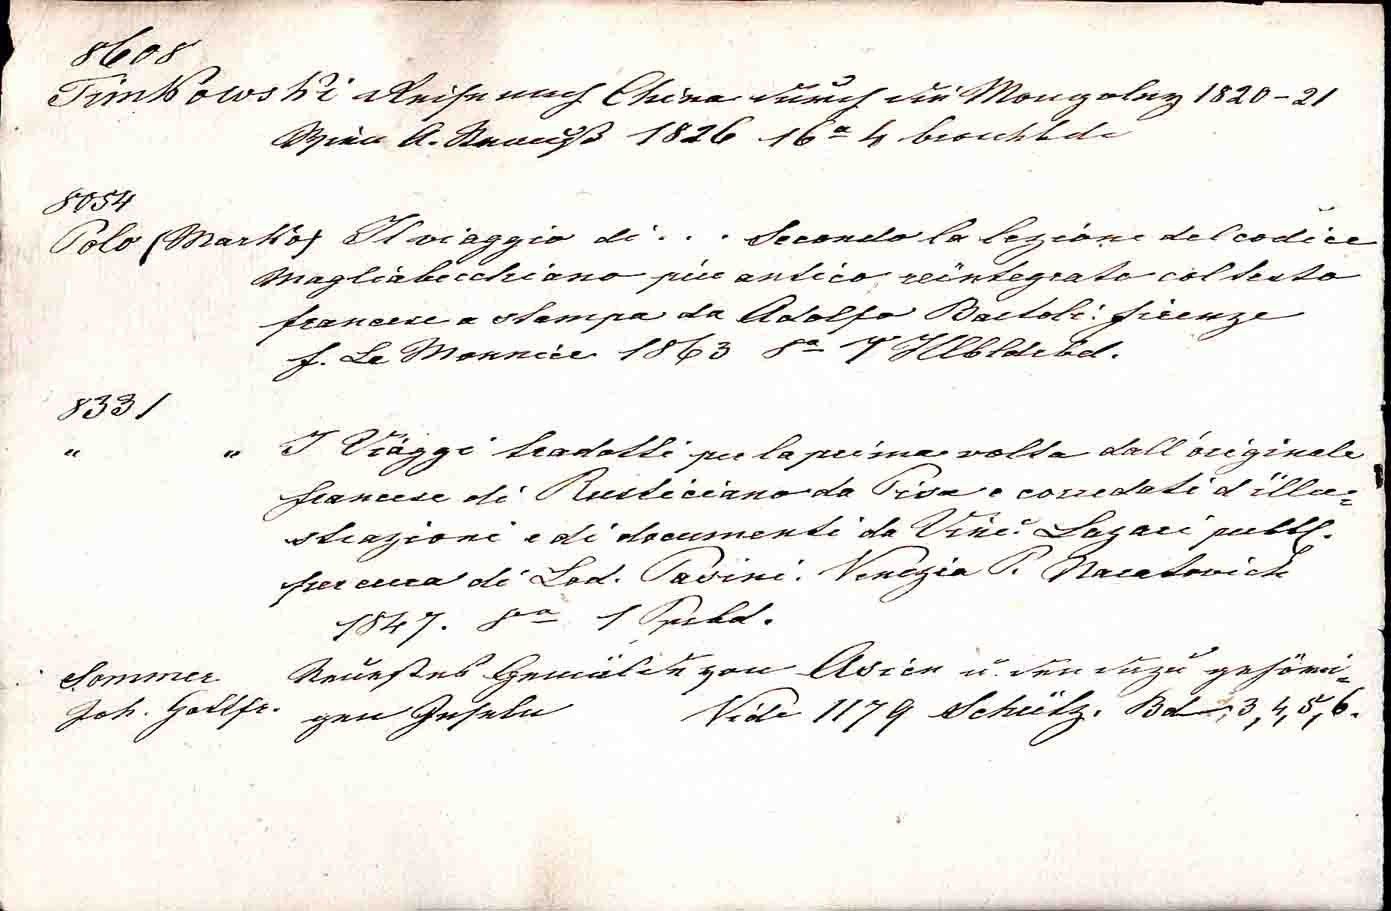 8608
Timkowski Reise nach China durch die Mongoley 1820-21
Wien A. Strauß 1826 16ª 4 brochbde
8054
Polo (Marko) Il viaggio di . . . secondo la lezione del codice
Magliabecchiano più antico reintegrato col testo
francese a stampa da Adolfo Bartoli. firenze
f. Le Monnier 1863 8ª
8331
" " I Viaggi tradotti per la prima volta dall'originale
francese di Rusticiano da Pisa e corredati d'illu=
strazioni e di documenti da Vinc. Lazari publ.
per cura di Lod. Pasini. Venezia P. Naratovich
1847. 8ª 1 Ppbd.
Sommer Neuestes Gemälde von Asien u. den dazu gehöri=
Joh. Gottfr. gen Inseln Vide 1179 Schütz. Bd 3, 4, 5, 6.